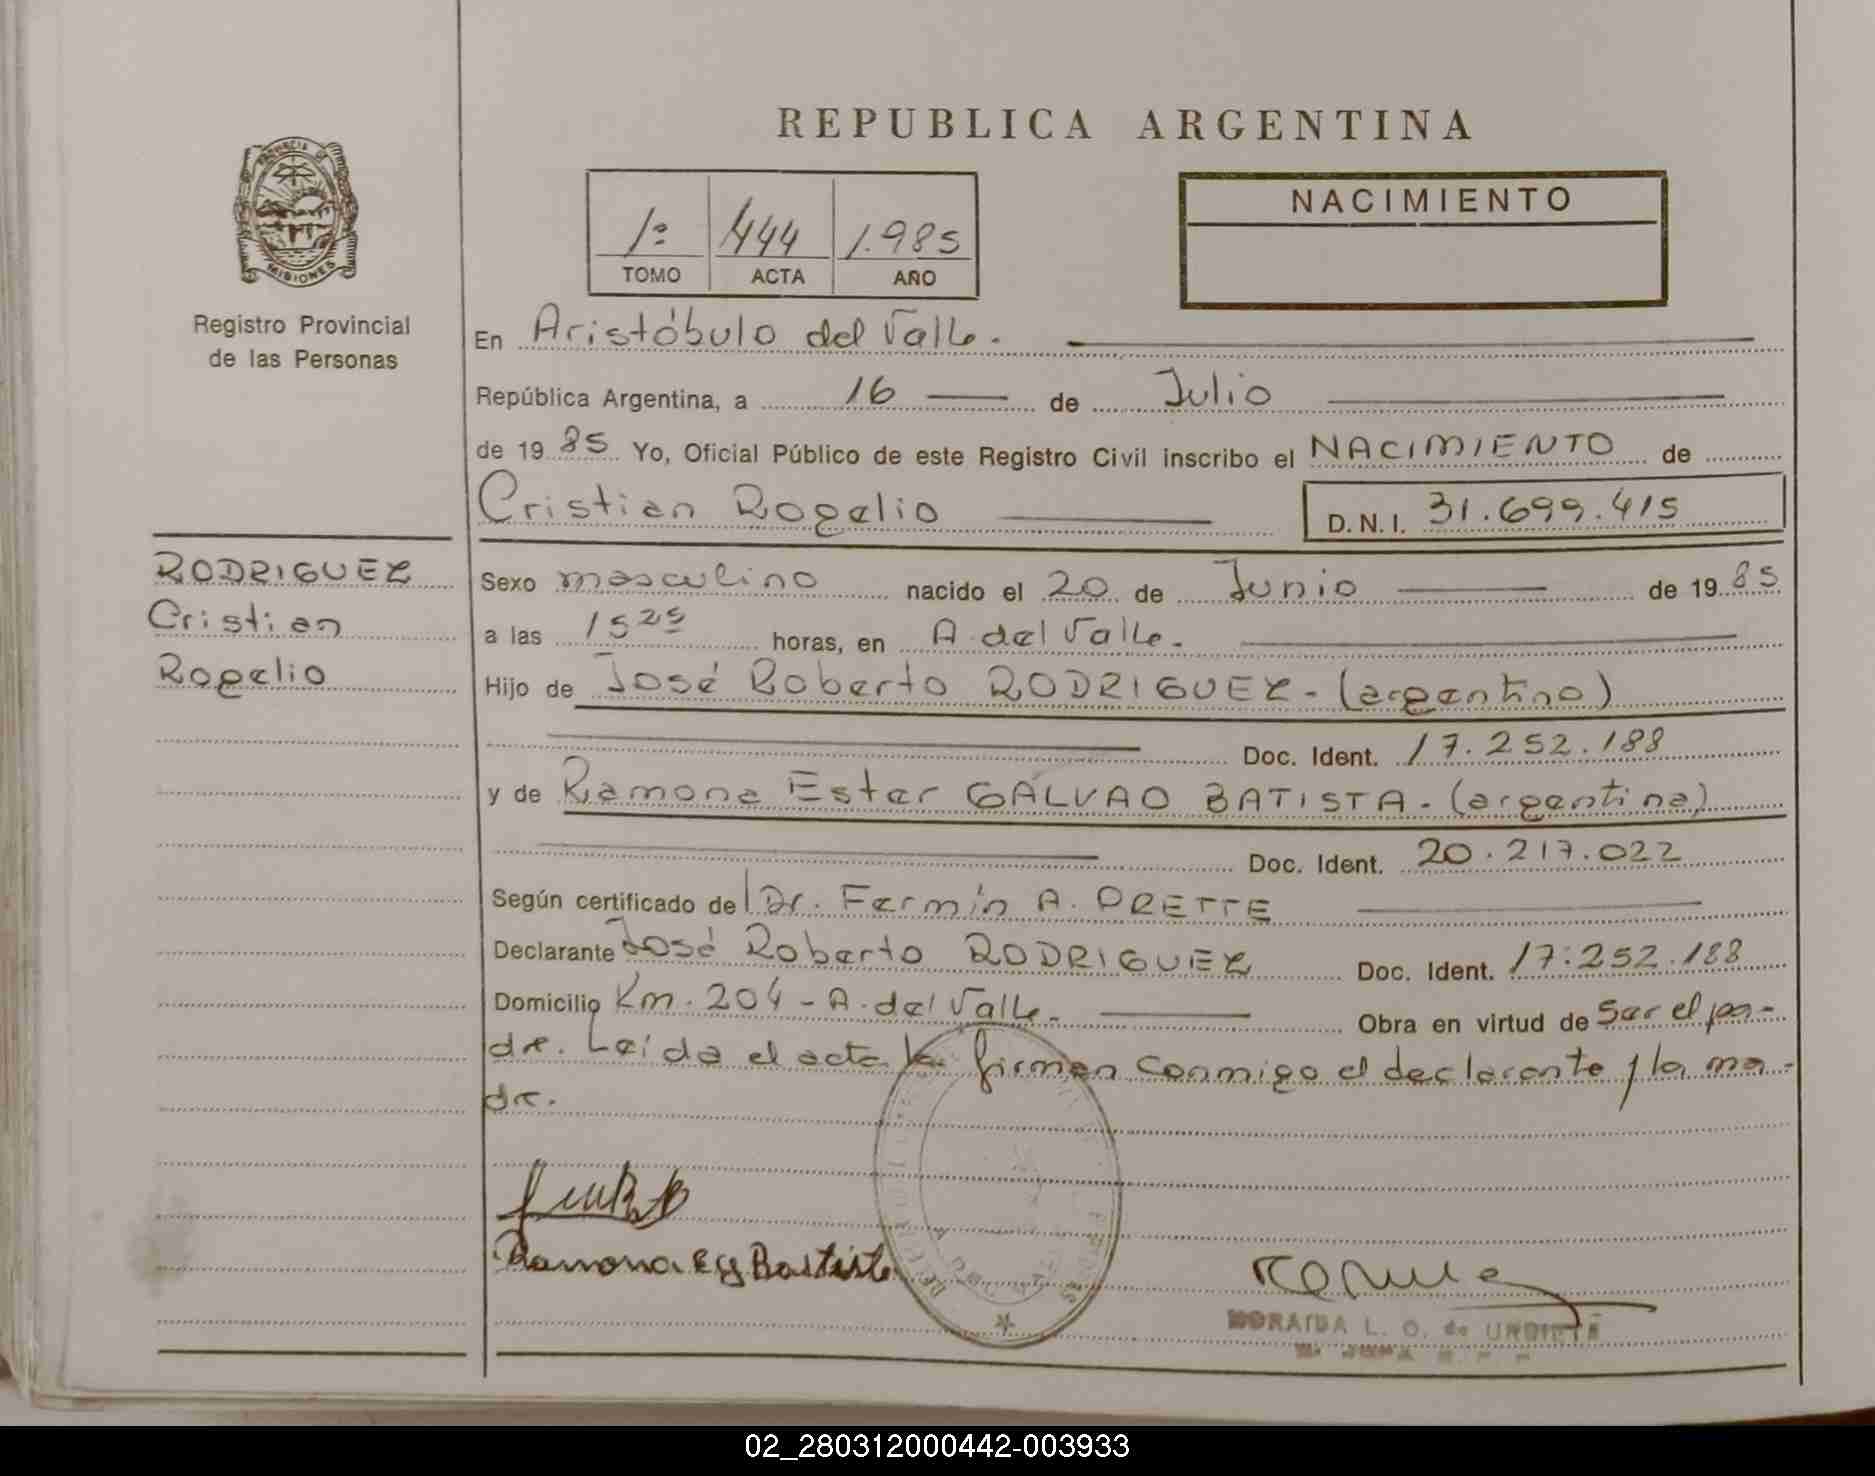 REPUBLICA ARGENTINA
PROVINCIA DE
MISIONES
Registro Provincial
de las Personas
1º 444 1.985
TOMO ACTA AÑO
NACIMIENTO
En Aristóbulo del Valle.
República Argentina, a 16 de Julio
de 1985 Yo, Oficial Público de este Registro Civil inscribo el NACIMIENTO de
Cristian Rogelio D.N.I. 31.699.415
RODRIGUEZ
Cristian
Rogelio
Sexo masculino nacido el 20 de Junio de 1985
a las 15 25 horas, en A. del Valle.
Hijo de José Roberto RODRIGUEZ - (argentino)
Doc. Ident. 17.252.188
y de Ramona Ester GALVAO BATISTA - (argentina)
Doc. Ident. 20.217.022
Según certificado de Dr. Fermín A. PRETTE
Declarante José Roberto RODRIGUEZ Doc. Ident. 17.252.188
Domicilio Km. 204 - A. del Valle. Obra en virtud de ser el pa-
dre. Leida el acta la firman conmigo el declarante y la ma-
dre.
Ramona E G Bastista
MORAIDA L. O. de
02_280312000442-003933